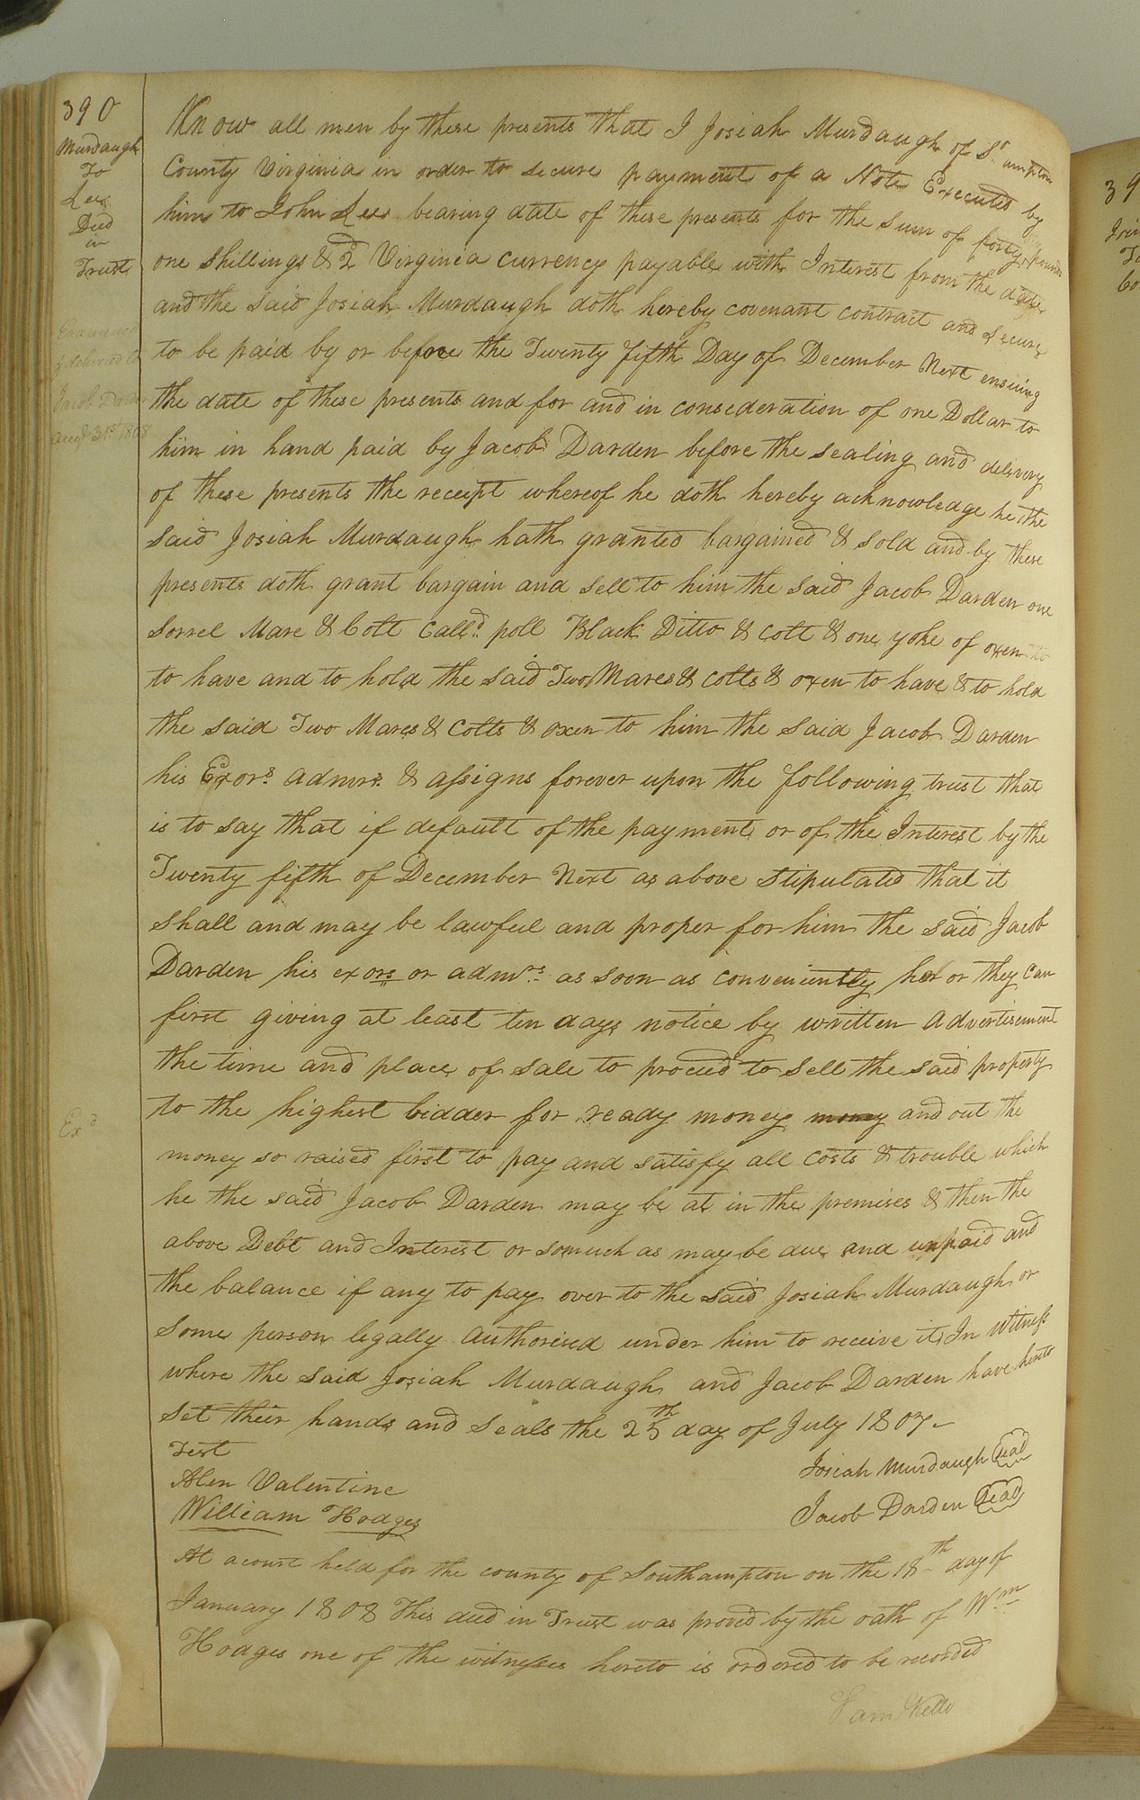 390
Murdaugh
To
Lee
Deed
in
Trust
Examined
& delivered to
Jacob Darden
augt 31st 1808
Know all men by these presents that I Josiah Murdaugh of So. ampton
County Virginia in order to secure payment of a Note Executed by
him to John Lee bearing date of these presents for the sum of forty pounds
one shillings & 2d Virginia currency payable with Interest from the date
and the said Josiah Murdaugh doth hereby covenant contract and secure
to be paid by or before the Twenty fifth Day of December Next ensuing
the date of these presents and for and in consederation of one Dollar to
him in hand paid by Jacob Darden before the sealing and delivery
of these presents the receipt whereof he doth hereby acknowledge he the
said Josiah Murdaugh hath granted bargained & sold and by these
presents doth grant bargain and sell to him the said Jacob Darden one
Sorrel Mare & Colt Calld. poll Black Ditto & colt & one yoke of oxen to
to have and to hold the said Two Mares & colts & oxen to have & to hold
the said Two Mares & Colts & oxen to him the said Jacob Darden
his Exors. admrs. & assigns forever upon the following trust that
is to say that if default of the payment or of the Interest by the
Twenty fifth of December Next as above stipulated that it
shall and may be lawful and proper for him the said Jacob
Darden his exors or admrs. as soon as conveniently he or they can
first giving at least ten days notice by written advertisement
the time and place of sale to proceed to sell the said property
to the highest bidder for ready money mony and out the
Exd
money so raised first to pay and satisfy all costs & trouble which
he the said Jacob Darden may be at in the premises & then the
above Debt and Interest or somuch as may be due and unpaid and
the balance if any to pay over to the said Josiah Murdaugh or
some person legally authorised under him to receive it In witness
where the said Josiah Murdaugh and Jacob Darden have hereto
set their hands and seals the 25th day of July 1807
Test
Josiah Murdaugh seal
Alen Valentine
Jacob Darden seal
William Hodges
At a court held for the county of Southampton on the 18th day of
January 1808 This deed in Trust was proved by the oath of Wm
Hodges one of the witnesses hereto is ordered to be recorded
Sam Kello
39